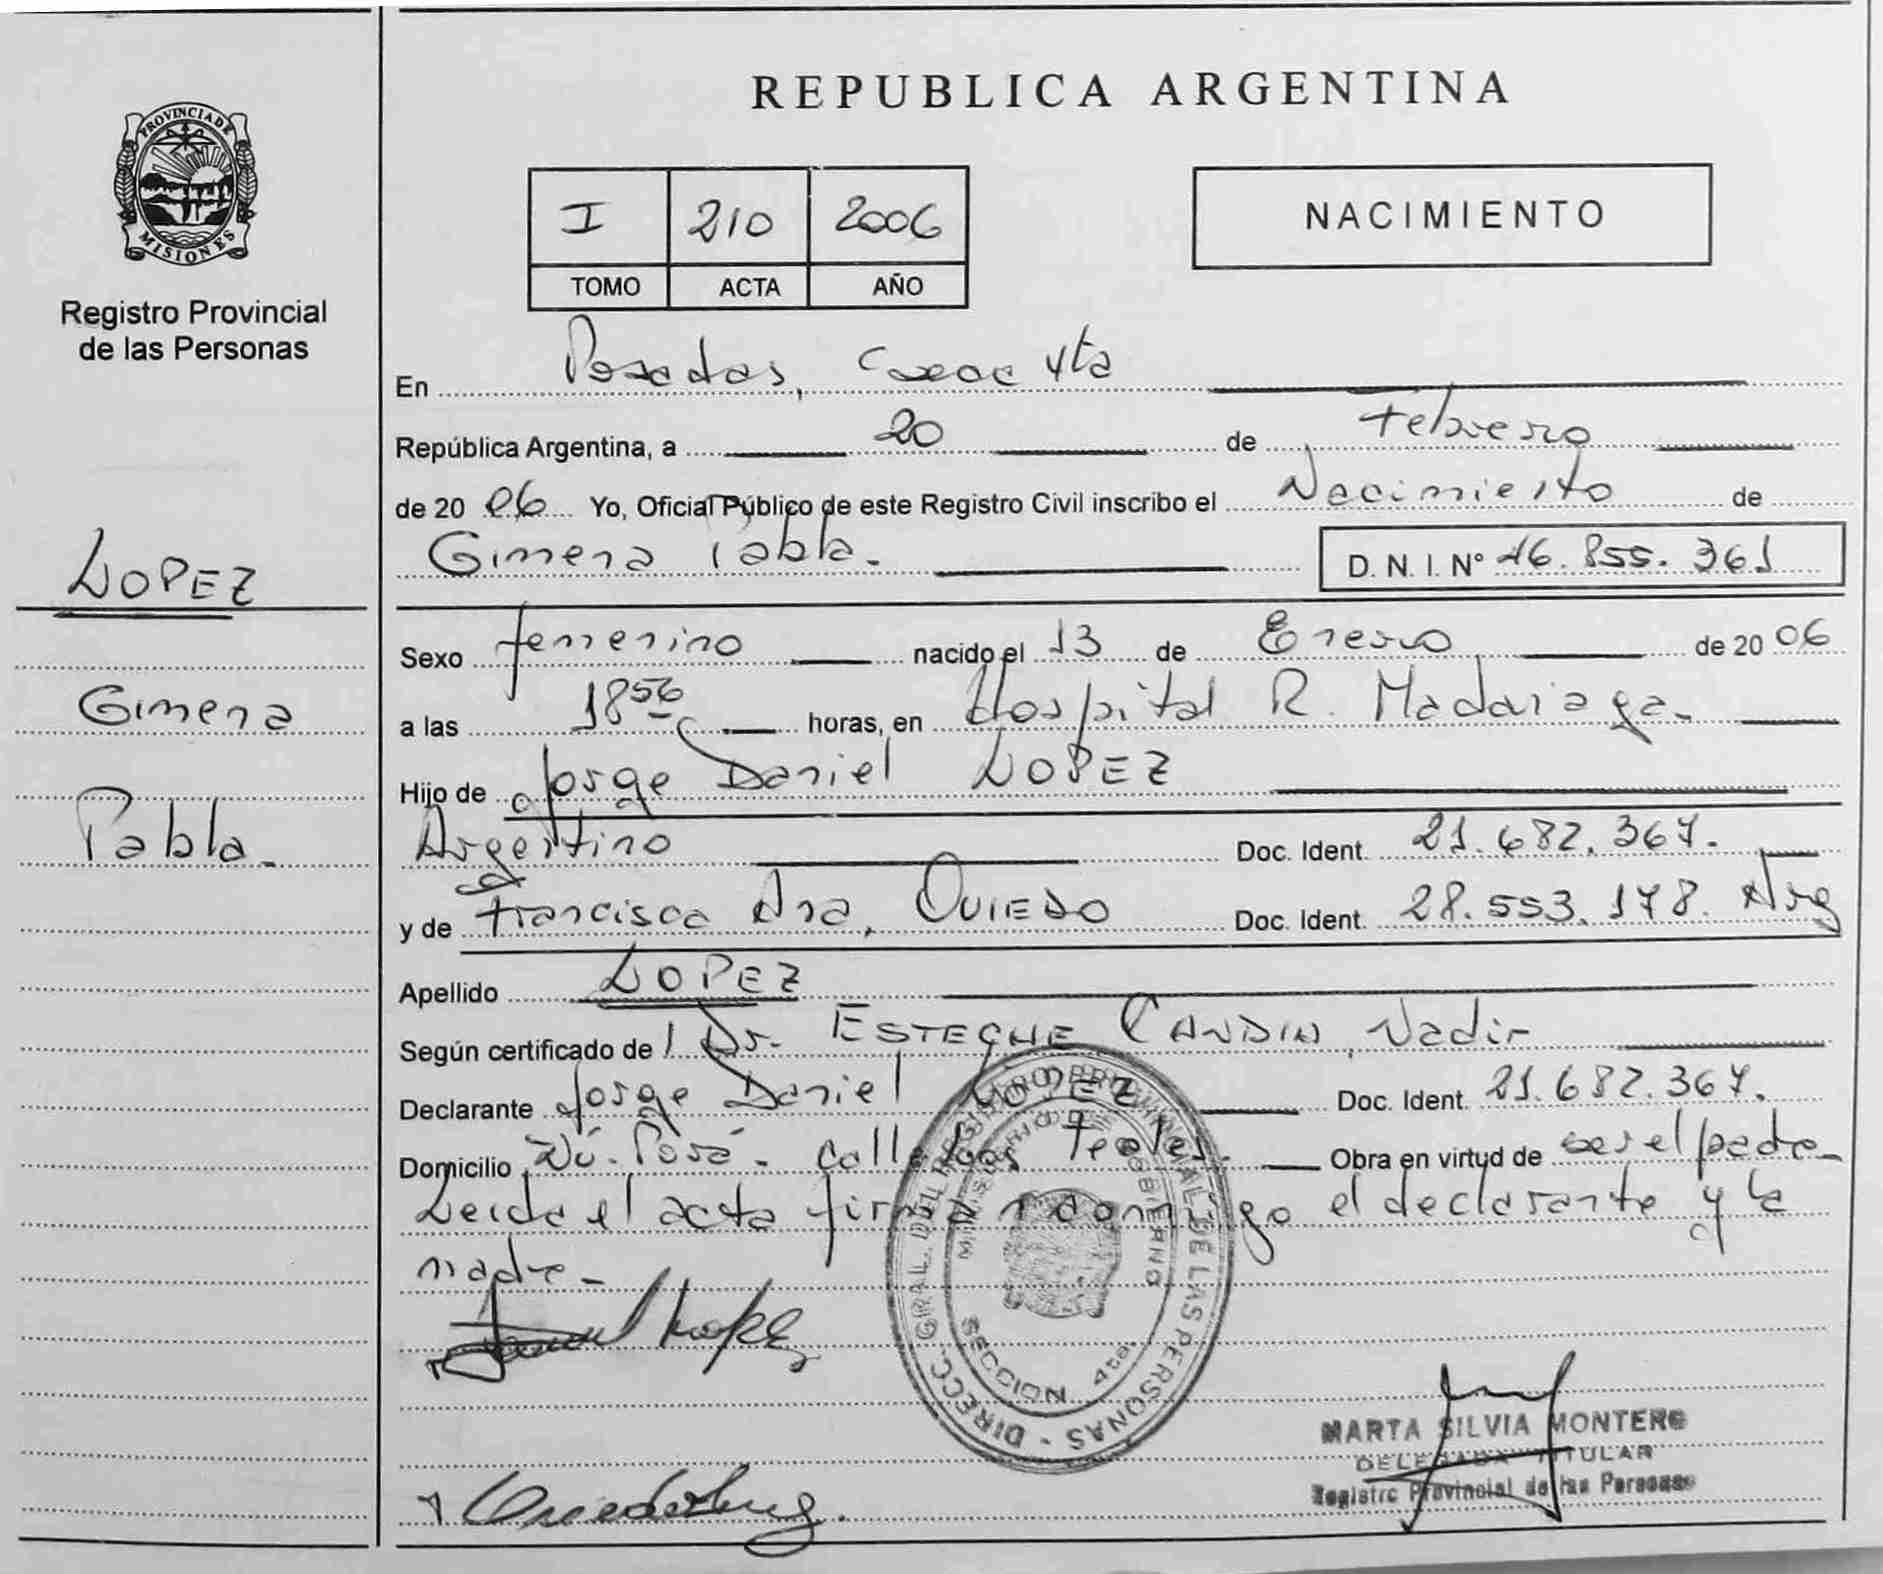 PROVINCIA DE
MISIONES
Registro Provincial
de las Personas
LOPEZ
Gimena
Pabla.
REPUBLICA ARGENTINA
I 210 2006
TOMO ACTA AÑO
NACIMIENTO
En Posadas, 4ta
República Argentina, a 20 de Febrero
de 20 06 Yo, Oficial Público de este Registro Civil inscribo el Nacimiento de
Gimena Pabla. D. N. I. Nº 46.855.361
Sexo femenino nacido el 13 de Enero de 20 06
a las 18 56 horas, en Hospital R. Madariaga.
Hijo de Jorge Daniel LOPEZ
Argentino Doc. Ident. 21.682.367.
y de Francisca Ana, OVIEDO Doc. Ident. 28.553.178. Arg
Apellido LOPEZ
Según certificado de Dr. ESTECHE CANDIA, Nadir
Declarante Jorge Daniel LOPEZ Doc. Ident. 21.682.367.
Domicilio calle Los Obra en virtud de ser el padre
Leída el acta firman conmigo el declarante y la
madre
DIRECC. GRAL. DEL REGISTRO PROVINCIAL DE LAS PERSONAS
MINISTERIO DE GOBIERNO
SECCION 4ta.
MARTA SILVIA MONTERO
DELEGADA TITULAR
Registro Provincial de las Personas